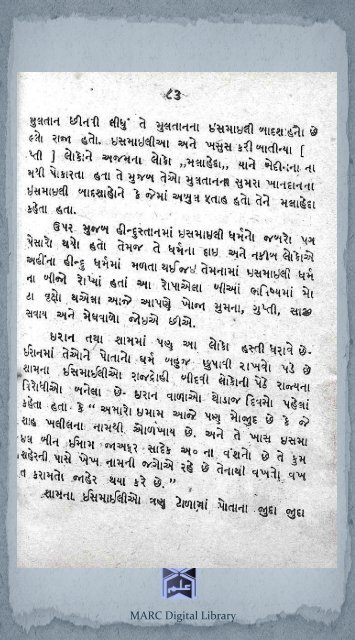 ૮૩
મુલતાન છીનવી લીધું તે મુલતાનના ઇસમાઇલી બાદશાહનો છે
લ્લો રાજા હતો. ઇસમાઇલીઆ અને ખસુસ કરી બાતીન્યા [
પ્તી ] લોકોને અજમના લોકો ,,મલાહેદા,, યાને બેદીનના ના
મથી પોકારતા હતા તે મુજબ તેઓ મુલતાનના સુમરા ખાનદાનના
ઇસમાઇલી બાદશાહોને કે જેમાં હતો તેને મલાહેદા
કહેતા હતા.
ઉપર મુજબ હીન્દુસ્તાનમાં ઇસમાઇલી ધર્મનો જબરો પગ
પેસારો થયો હતો તેમજ તે ધર્મના દાઇ અને નકીબ લોકોએ
અહીંના હીન્દુ ધર્મમાં મળતા થઈજઇ તેમનામાં ઇસમાઇલી ધર્મ
ના બીજો રોપ્યાં હતાં આ રોપાએલા બીઆં ભવિષ્યમાં મો
ટા વૃક્ષો થએલા આજે આપણે ખોજા મુમના, ગુપ્તી,
સવાય અને મેઘવાળો જોઇએ છીએ.
ઇરાન તથા શામમાં પણ આ લોકો હસ્તી ધરાવે છે-
ઇરાનમાં તેઓને પોતાનો ધર્મ બહુજ છુપાવી રાખવો પડે છે
શામના ઇસમાઇલીઓ રાજદ્રોહી બીદવી લોકોની પેઠે રાજ્યના
વિરોધીઓ બનેલા છે- ઇરાન વાળાઓ થોડાજ દિવસો પહેલાં
કહેતા હતા કે “ અમારો ઇમામ આજે પણ મોજુદ છે કે જે
શાહ ખલીલના નામથી ઓળખાય છે. અને તે ખાસ ઇસમા
ઇલ બીન ઇમામ જાઅફર સાદેક અ૦ ના વંશનો છે તે કુમ
શહેરની પાસે ખેખ નામની જગોએ રહે છે તેનાથી વખતો વખ
ત કરામતો જાહેર થયા કરે છે. ”
શામના ઇસમાઇલીઓ ત્રણ ટોળામાં પોતાના જુદા જુદા
MARC Digital Library